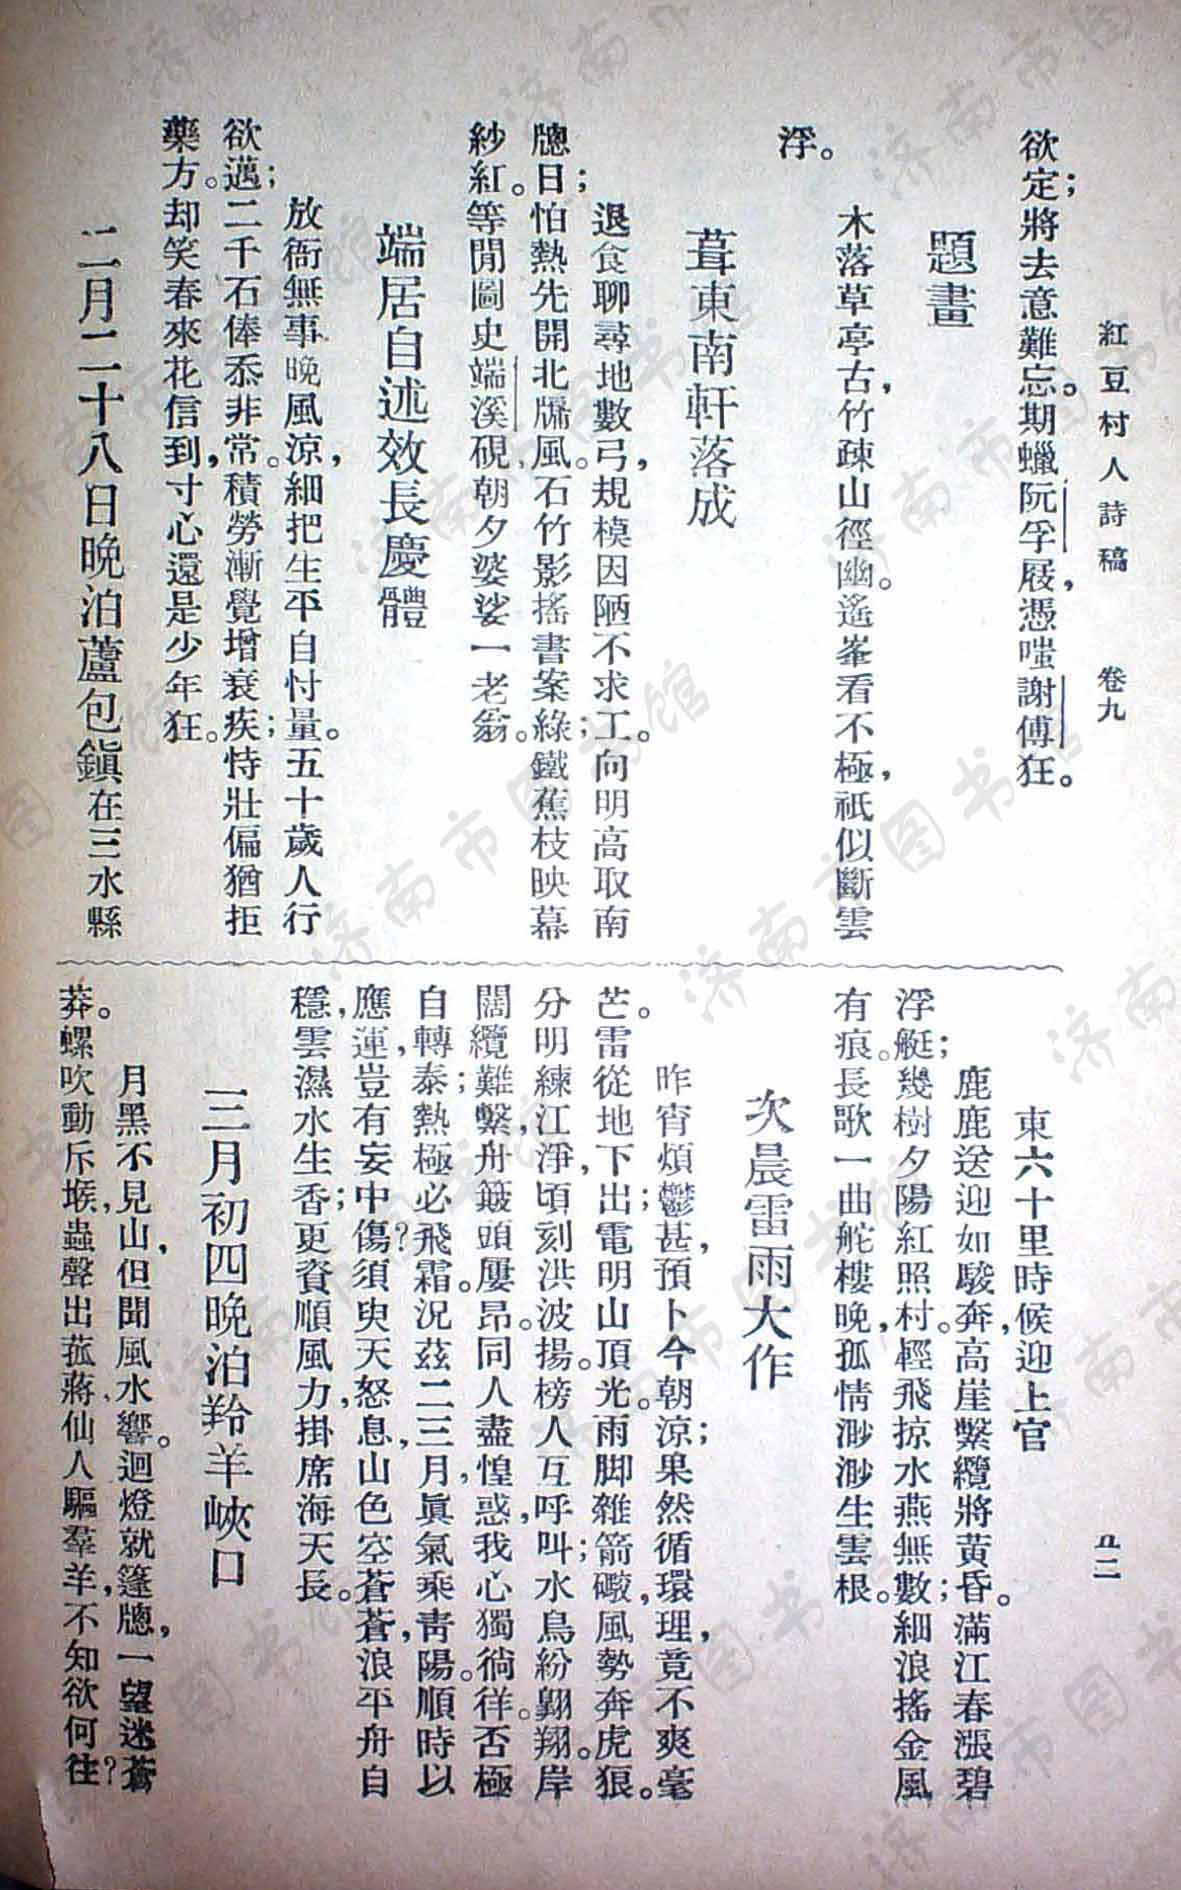 紅豆村人詩稿　卷九　五二
欲定；將去意難忘。期蠟阮孚屐，憑嗤謝傅狂。
題畫
木落草亭古，竹疎山徑幽。遙峯看不極，祇似斷雲
浮。
葺東南軒落成
退食聊尋地數弓，規模因陋不求工。向明高取南
牕日；怕熱先開北牖風。石竹影搖書案綠；鐵蕉枝映幕
紗紅。等閒圖史端溪硯，朝夕婆娑一老翁。
端居自述效長慶體
放衙無事晚風涼，細把生平自忖量。五十歲人行
欲邁；二千石俸忝非常。積勞漸覺增衰疾；恃壯偏猶拒
藥方。却笑春來花信到，寸心還是少年狂。
二月二十八日晚泊蘆包鎭在三水縣
東六十里時候迎上官
鹿鹿送迎如駿奔，高崖繫纜將黃昏。滿江春漲碧
浮艇；幾樹夕陽紅照村。輕飛掠水燕無數；細浪搖金風
有痕。長歌一曲舵樓晚，孤情渺渺生雲根。
次晨雷雨大作
昨宵煩鬱甚，預卜今朝涼；果然循環理，竟不爽毫
芒。雷從地下出；電明山頂光。雨脚雜箭礮，風勢奔虎狼。
分明練江淨，頃刻洪波揚。榜人互呼叫；水鳥紛翺翔。岸
闊纜難繫，舟簸頭屢昂。同人盡惶惑，我心獨徜徉。否極
自轉泰；熱極必飛霜。況茲二三月，眞氣乘靑陽。順時以
應運，豈有妄中傷？須臾天怒息，山色空蒼蒼，浪平舟自
穩，雲濕水生香；更資順風力，掛席海天長。
三月初四晚泊羚羊峽口
月黑不見山，但聞風水響。迴燈就篷牕，一望迷蒼
莽。螺吹動斥堠，蟲聲出菰蔣。仙人驅羣羊，不知欲何往？